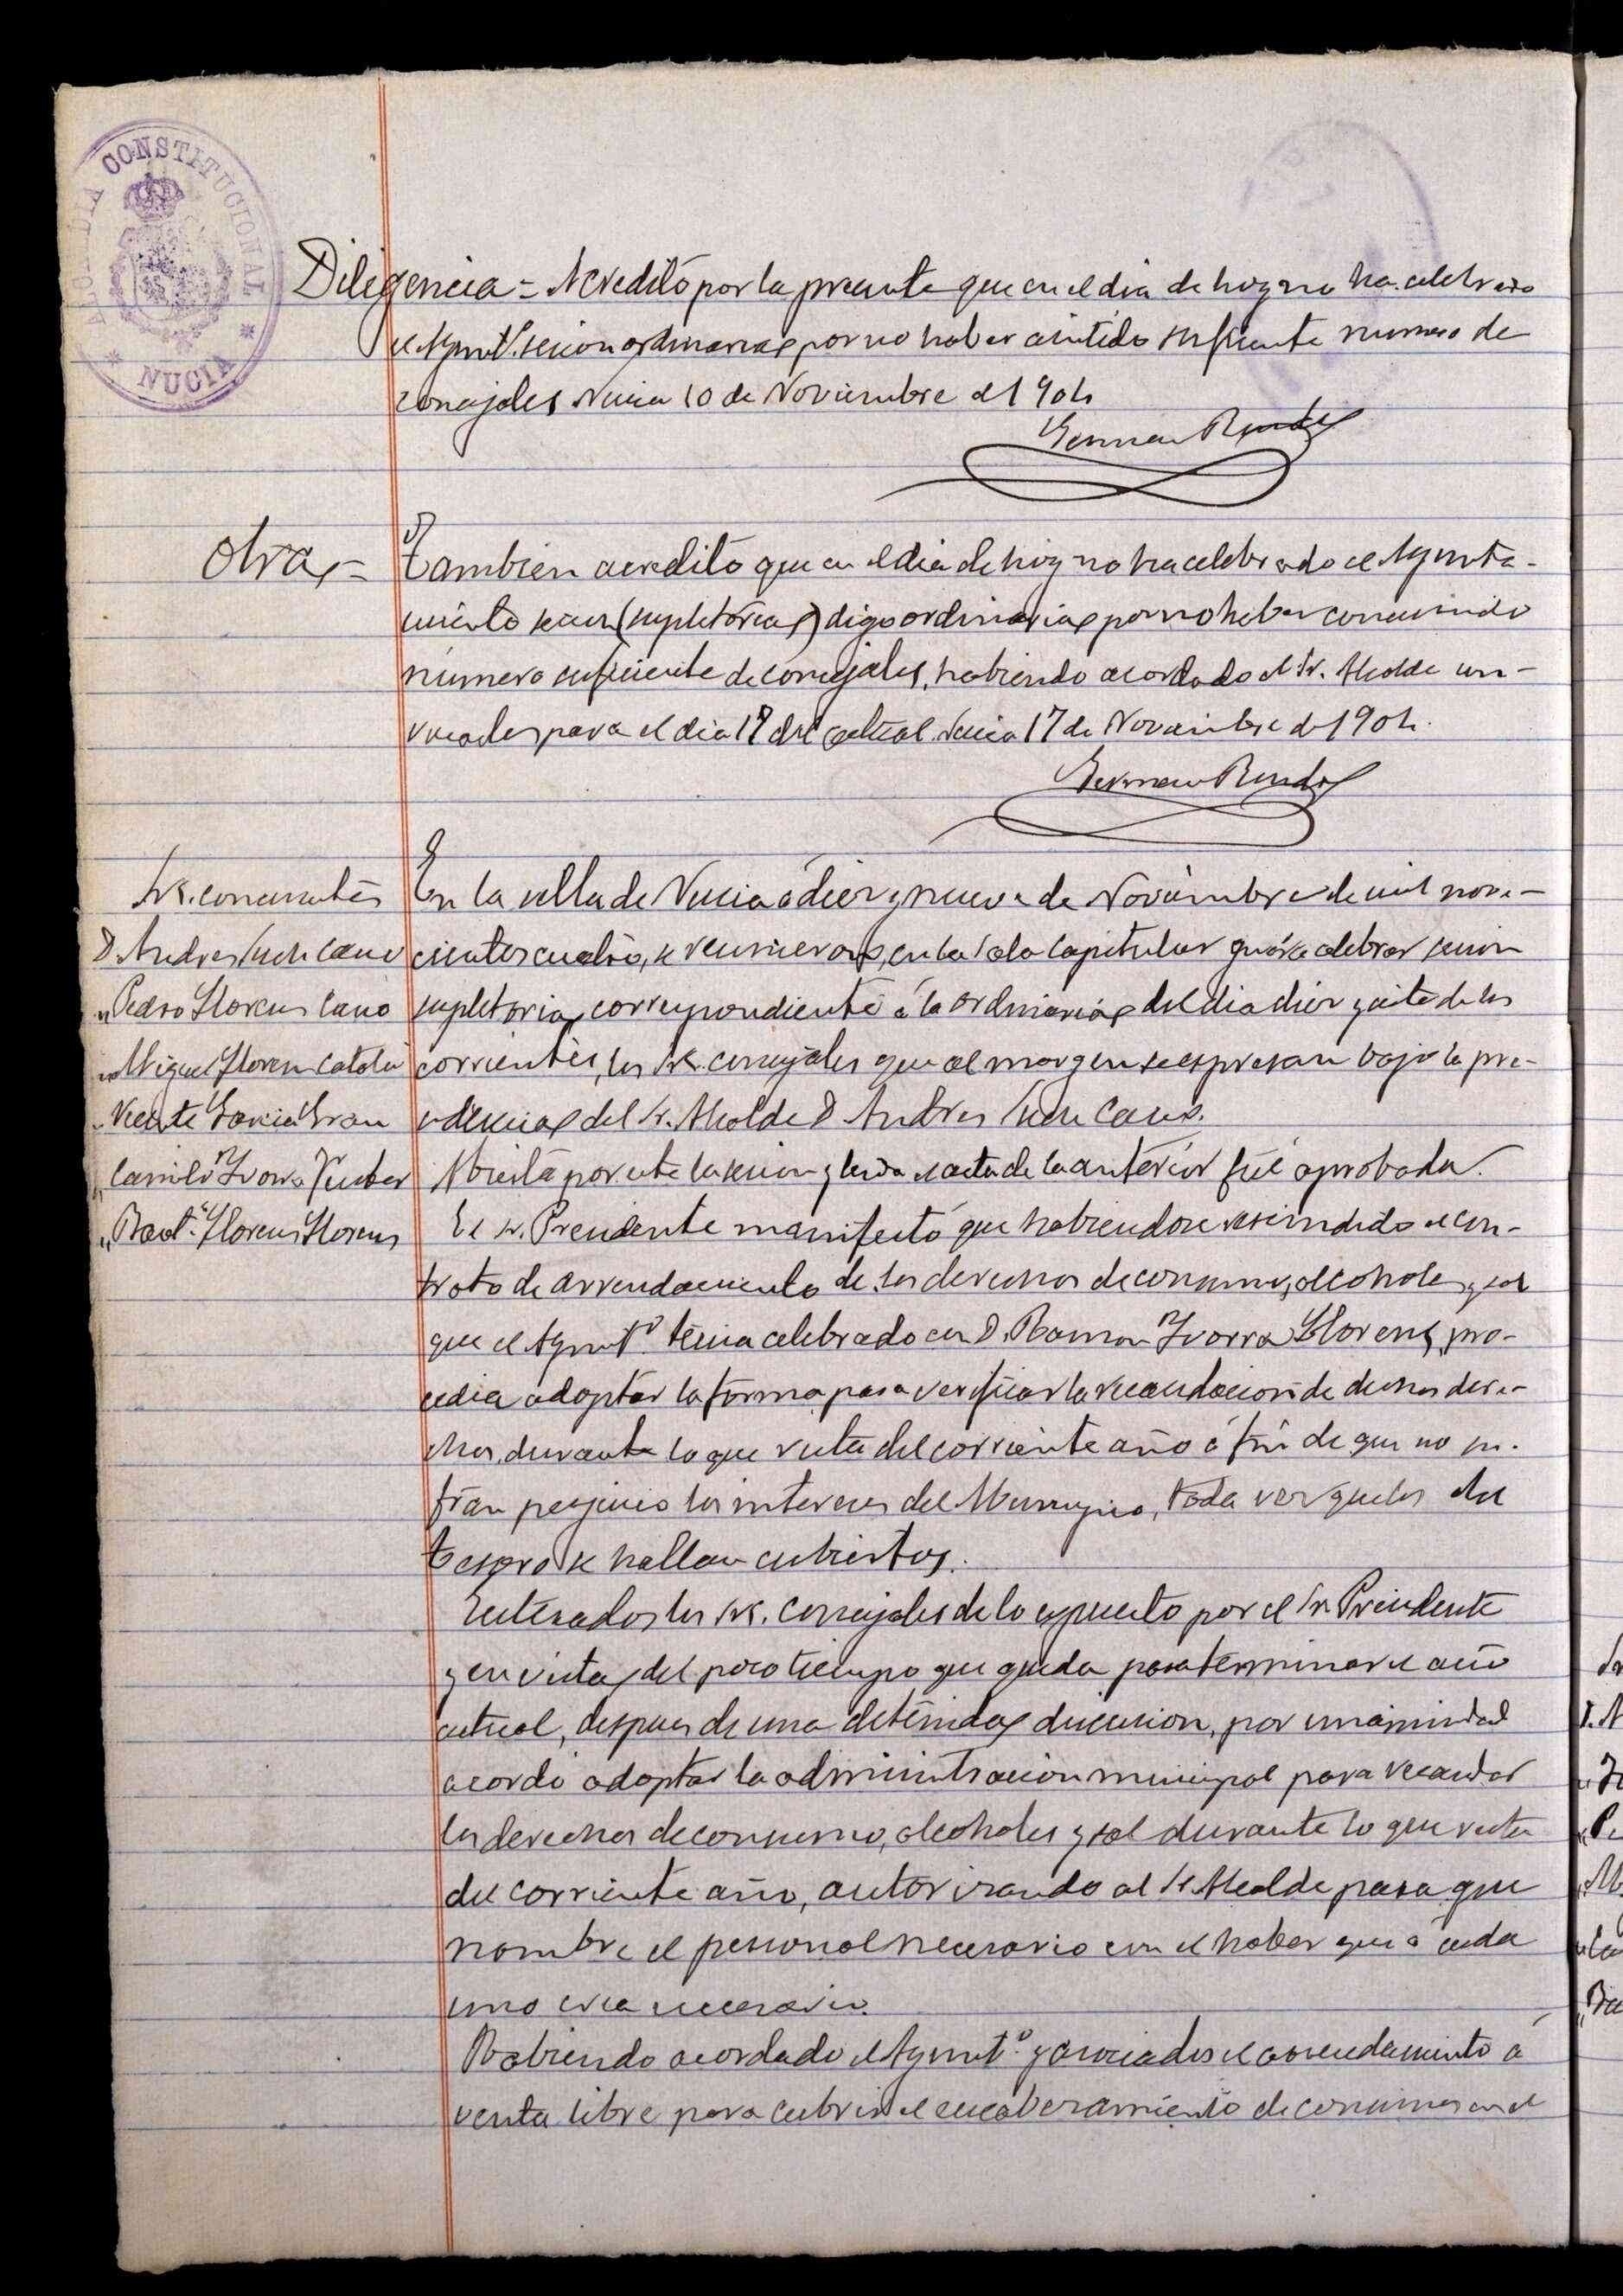 ALCALDIA CONSTITUCIONAL
* NUCIA *
Diligencia = Acreditó por la presente que en el dia de hoy no ha celebrado
el Aymtº. sesion ordinaria por no haber asistido suficiente numero de
concejales Nucia 10 de Noviembre d 1904
German
Otra =
Tambien acredito que en el dia de hoy no ha celebrado el Ayunta-
miento sesion (supletoria) digo ordinaria por no haber concurrido
número suficiente de concejales, habiendo acordado el Sr. Alcalde con-
vocarles para el dia 19 del actual. Nucia 17 de Noviembre de 1904.
German
Srs. concurrentes
D. Andres Such Cano
" Pedro Llorens Cano
" Miguel Lloren Catalá
" Vicente Garcia Gran
" Camilo Ivorra Fuster
" Baut.ª Llorens Llorens
En la villa de Nucia á diez y nueve de Noviembre de mil nove-
cientos cuatro, se reunieron, en la Sala Capitular para celebrar sesion
supletoria correspondiente á la ordinaria del dia diez y siete de los
corrientes, los Srs. concejales que al margen se espresan bajo la pre-
sidencia del Sr. Alcalde D Andres Such Cano.
Abierta por este la sesion y leida el acta de la anterior fué aprobada.
El Sr. Presidente manifestó que habiendose rescindido el con-
trato de arrendamiento de los derechos de consumos, alcoholes y sal
que el Aymtº. tenia celebrado con D. Ramon Ivorra Llorens, pro-
cedia adoptar la forma para verificar la recaudacion de dichos dere-
chos, durante lo que resta del corriente año á fin de que no su-
fran perjuicio los intereses del Municipio, toda vez que los del
tesoro se hallan cubiertos.
Enterados los Srs. Concejales de lo espuesto por el Sr. Presidente
y en vista del poco tiempo que queda para terminar el año
actual, despues de una detenida discusion, por unanimidad
acordó adoptar la administracion municipal para recaudar
los derechos de consumo, alcoholes y sal durante lo que resta
del corriente año, autorizando al Sr Alcalde para que
nombre el personal necesario con el haber que á cada
uno crea necesario.
Habiendo acordado el Aymtº. y asociados el arrendamiento á
venta libre para cubrir el encabezamiento de consumos en el